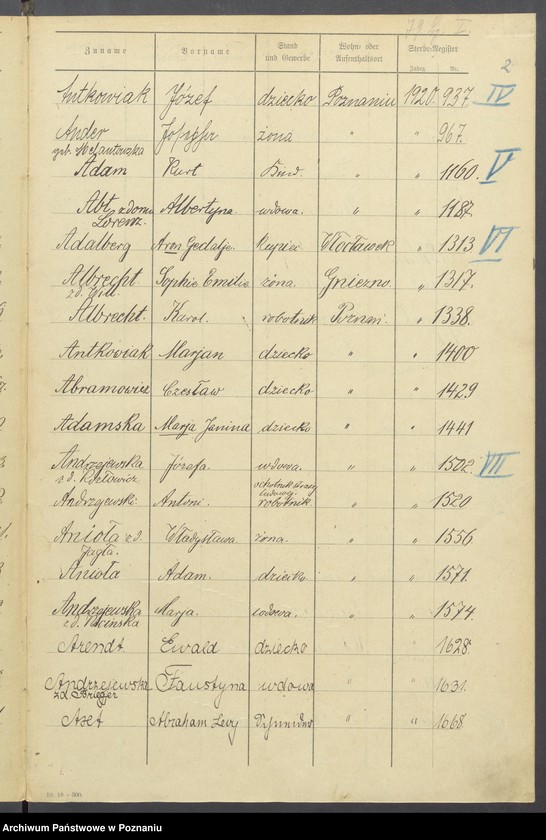 2
Zuname Vorname Stand und Gewerbe Wohn- oder Aufenthaltsort Sterbe-Register
Jahrg. Nr.
Antkowiak Józef dziecko Poznaniu 1920. 937. IV
Ander żona " " 967.
geb.
Adam Kurt " " 1160. V
Abt z domu Albertyna. wdowa. " " 1187.
Lorenz.
Adalberg Aron Gedalje. Kupiec Włocławek " 1313 VI
Albrecht Sophie Emilie żona. Gniezno. " 1317.
z d.
Albrecht. Karol. robotnik Poznań. " 1338.
Antkowiak Marjan dziecko " " 1400
Abramowicz Czesław dziecko " " 1429
Adamska Marja Janina dziecko " " 1441
Andrzejewska Józefa. wdowa. " " 1502. VII
z d. Kozłowicz
ludowej.
Andrzejewski Antoni. robotnik " " 1520
Anioła z d. Władysława. żona. " " 1556
Jagła.
Anioła Adam. dziecko " " 1571.
Andrzejewska Marja. wdowa. " " 1574.
z d.
Arendt Ewald dziecko " 1628.
Andrzejewska Faustyna wdowa " " 1631.
zd. Brieger
Aset Abraham Levy " " 1668
Archiwum Państwowe w Poznaniu